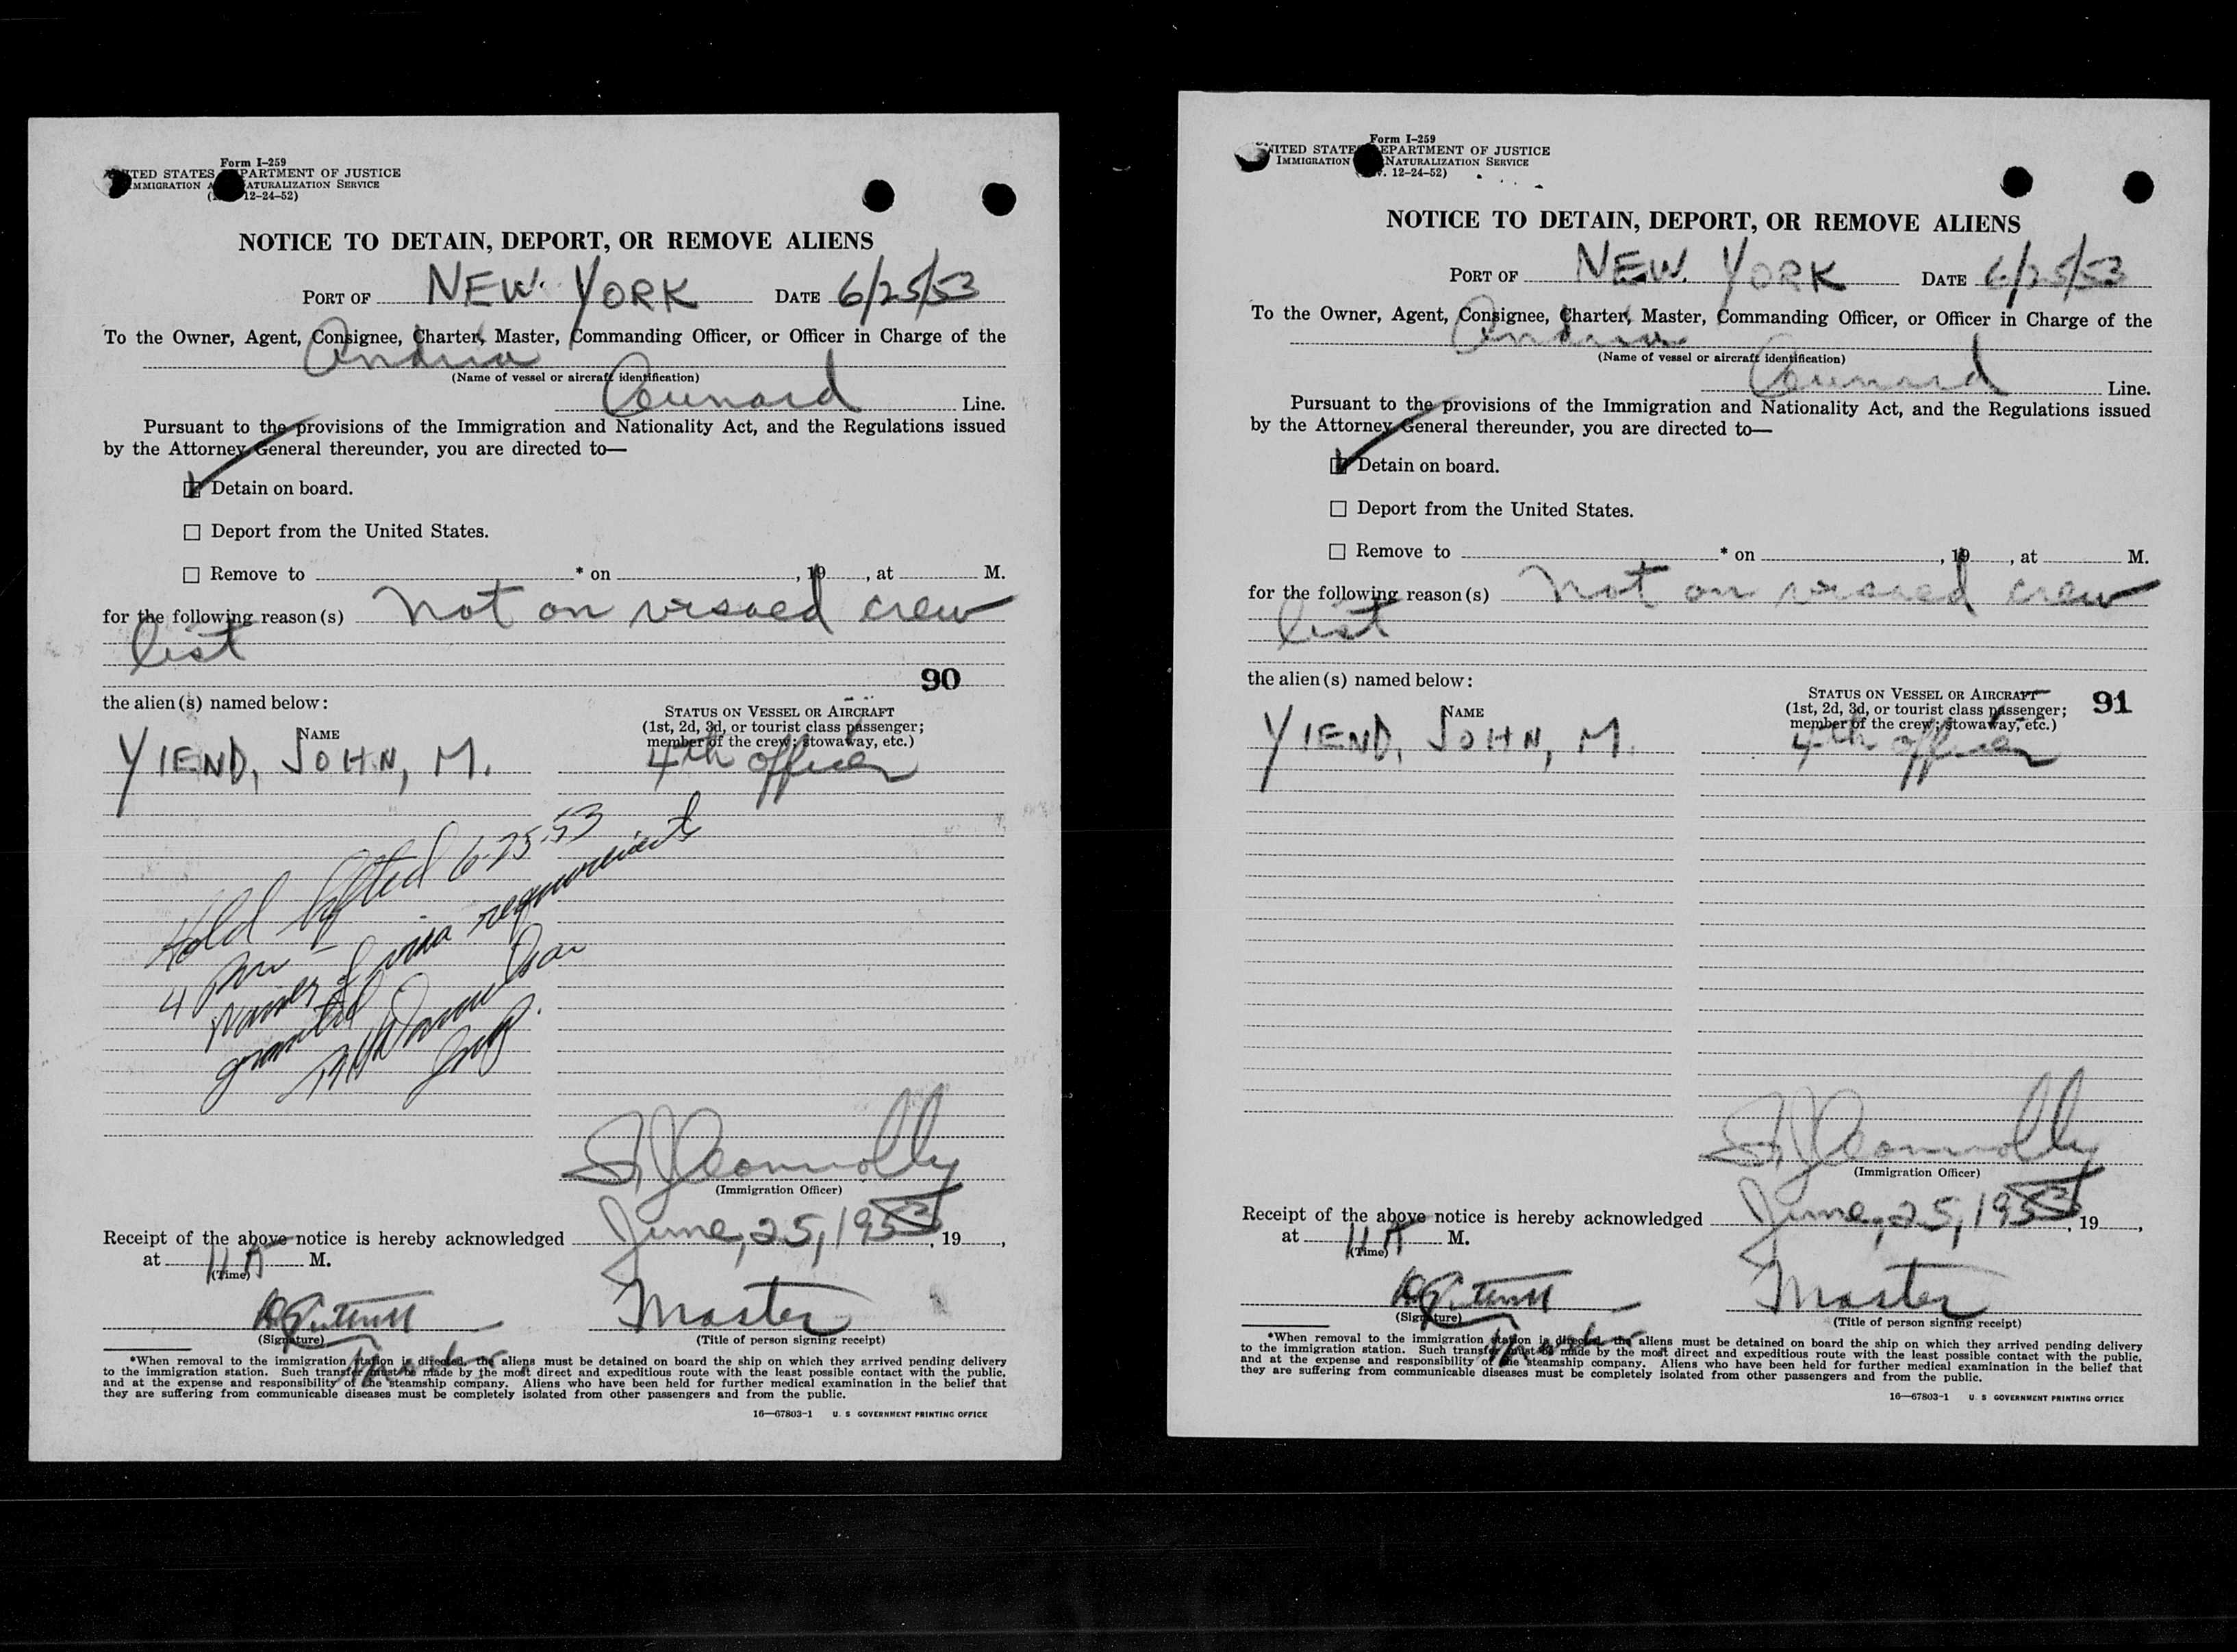 Form I-259
UNITED STATES DEPARTMENT OF JUSTICE
IMMIGRATION NATURALIZATION SERVICE
12-24-52)
NOTICE TO DETAIN, DEPORT, OR REMOVE ALIENS
PORT OF NEW YORK DATE 6/25/53
To the Owner, Agent, Consignee, Charter, Master, Commanding Officer, or Officer in Charge of the
Andria
(Name of vessel or aircraft identification)
Cunard Line.
Pursuant to the provisions of the Immigration and Nationality Act, and the Regulations issued
by the Attorney General thereunder, you are directed to—
Detain on board.
Deport from the United States.
Remove to * on , 19 , at M.
for the following reason(s) not on visaed crew
list
90
the alien(s) named below:
NAME
STATUS ON VESSEL OR AIRCRAFT
(1st, 2d, 3d, or tourist class passenger;
member of the crew; stowaway, etc.)
YIEND, JOHN, M. 4th officer
Hold lifted 6-25-53
4 pm -
Waiver of visa requirement
granted
(Immigration Officer)
Receipt of the above notice is hereby acknowledged June, 25, 1953, 19 ,
at 11 A M.
(Time)
Master
(Signature) (Title of person signing receipt)
*When removal to the immigration station is directed, the aliens must be detained on board the ship on which they arrived pending delivery
to the immigration station. Such transfer must be made by the most direct and expeditious route with the least possible contact with the public,
and at the expense and responsibility of the steamship company. Aliens who have been held for further medical examination in the belief that
they are suffering from communicable diseases must be completely isolated from other passengers and from the public.
16—67803-1 U. S GOVERNMENT PRINTING OFFICE
Form I-259
UNITED STATES DEPARTMENT OF JUSTICE
IMMIGRATION NATURALIZATION SERVICE
12-24-52)
NOTICE TO DETAIN, DEPORT, OR REMOVE ALIENS
PORT OF NEW YORK DATE 6/25/53
To the Owner, Agent, Consignee, Charter, Master, Commanding Officer, or Officer in Charge of the
Andria
(Name of vessel or aircraft identification)
Cunard Line.
Pursuant to the provisions of the Immigration and Nationality Act, and the Regulations issued
by the Attorney General thereunder, you are directed to—
Detain on board.
Deport from the United States.
Remove to * on , 19 , at M.
for the following reason(s) not on visaed crew
list
the alien(s) named below:
NAME
STATUS ON VESSEL OR AIRCRAFT 91
(1st, 2d, 3d, or tourist class passenger;
member of the crew; stowaway, etc.)
YIEND, JOHN, M. 4th officer
(Immigration Officer)
Receipt of the above notice is hereby acknowledged June, 25, 1953, 19 ,
at 11 A M.
(Time)
Master
(Signature) (Title of person signing receipt)
*When removal to the immigration station is directed, the aliens must be detained on board the ship on which they arrived pending delivery
to the immigration station. Such transfer must be made by the most direct and expeditious route with the least possible contact with the public,
and at the expense and responsibility of the steamship company. Aliens who have been held for further medical examination in the belief that
they are suffering from communicable diseases must be completely isolated from other passengers and from the public.
16—67803-1 U. S GOVERNMENT PRINTING OFFICE